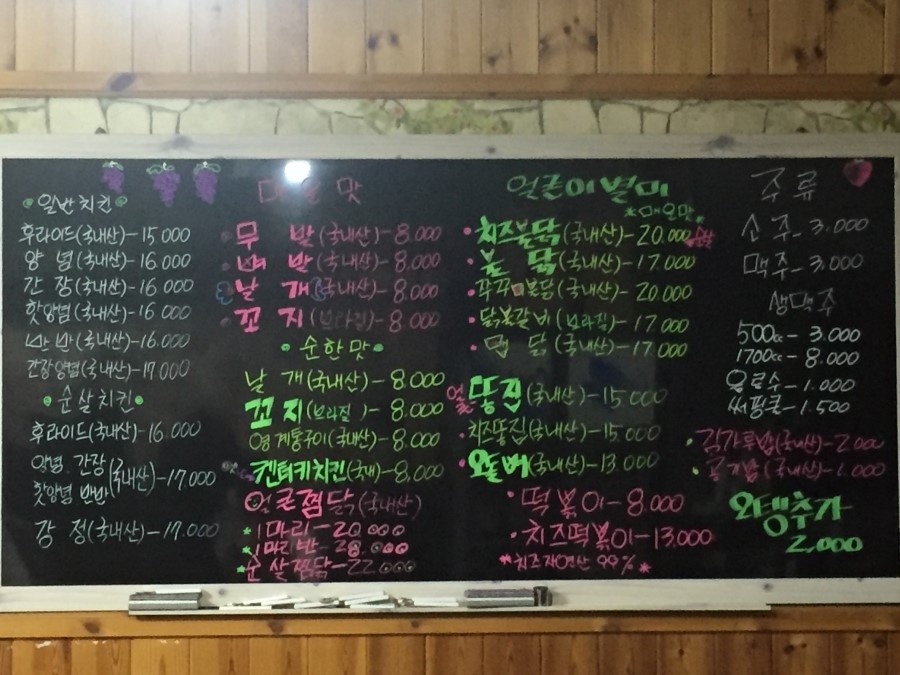 일반치킨
후라이드(국내산)-15.000
양 념(국내산)-16.000
간 장(국내산)-16.000
핫양념(국내산)-16.000
반반(국내산)-16.000
간장양념(국내산)-17.000
순살치킨
후라이드(국내산)-16.000
양념. 간장
핫양념 반반
(국내산)-17.000
강 정(국내산)-17.000
매운맛
무 발(국내산)-8.000
뼈 발(국내산)-8.000
날 개(국내산)-8.000
꼬 지(브라질)-8.000
순한맛
날 개(국내산)-8.000
꼬 지(브라질)-8.000
(국내산)-8.000
켄터키치킨(국내)-8.000
얼큰찜닭(국내산)
*1마리-20.000
*1마리반-28.000
*순살찜닭-22.000
얼큰이별미
*매운맛
치즈불닭(국내산)-20.000
불 닭(국내산)-17.000
쭈꾸불닭(국내산)-20.000
닭봌갈비(브라질)-17.000
닭(국내산)-17.000
똥집(국내산)-15.000
치즈똥집(국내산)-15.000
오돌뼈(국내산)-13.000
떡볶이-8.000
치즈떡볶이-13.000
*치즈자연산 99%*
주류
소주-3.000
맥주-3.000
생맥주
500cc-3.000
1700cc-8.000
음료수-1.000
써핑쿨-1.500
김가루밥(국내산)-2.000
공기밥(국내산)-1.000
오뎅추가
2.000